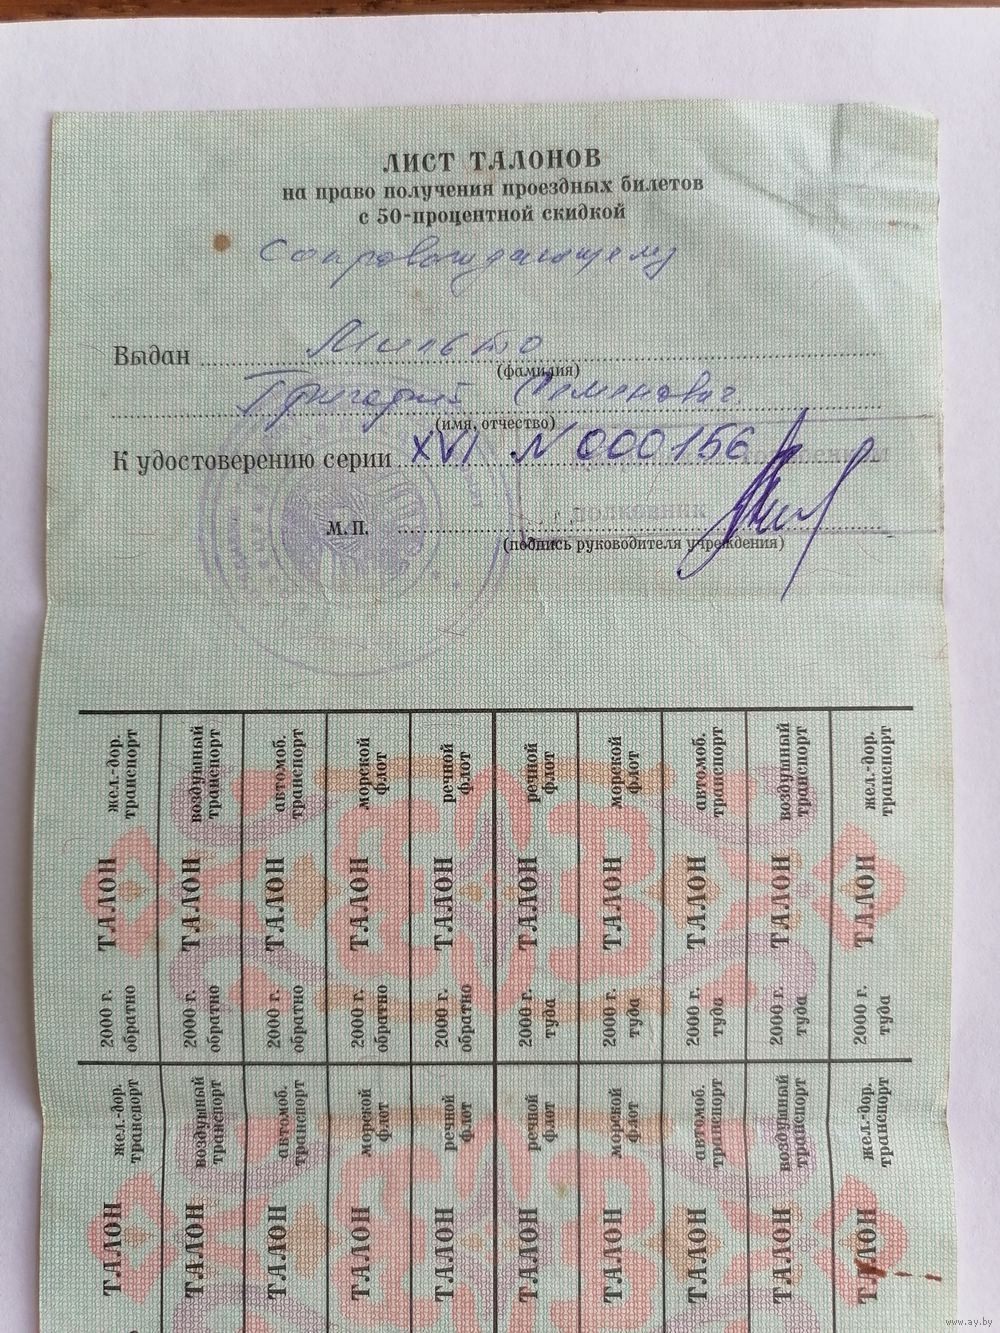 ЛИСТ ТАЛОНОВ
на право получения проездных билетов
с 50-процентной скидкой
Сопровождающему
Выдан Мильто
(фамилия)
Григорий Семенович
(имя, отчество)
К удостоверению серии XVI N 000156
полковник
М. П.
(подпись руководителя учреждения)
жел.-дор. транспорт ТАЛОН 2000 г. обратно
воздушный транспорт ТАЛОН 2000 г. обратно
автомоб. транспорт ТАЛОН 2000 г. обратно
морской флот ТАЛОН 2000 г. обратно
речной флот ТАЛОН 2000 г. обратно
речной флот ТАЛОН 2000 г. туда
морской флот ТАЛОН 2000 г. туда
автомоб. транспорт ТАЛОН 2000 г. туда
воздушный транспорт ТАЛОН 2000 г. туда
жел.-дор. транспорт ТАЛОН 2000 г. туда
жел.-дор. транспорт ТАЛОН
воздушный транспорт ТАЛОН
автомоб. транспорт ТАЛОН
морской флот ТАЛОН
речной флот ТАЛОН
речной флот ТАЛОН
морской флот ТАЛОН
автомоб. транспорт ТАЛОН
воздушный транспорт ТАЛОН
жел.-дор. транспорт ТАЛОН
www.ay.by